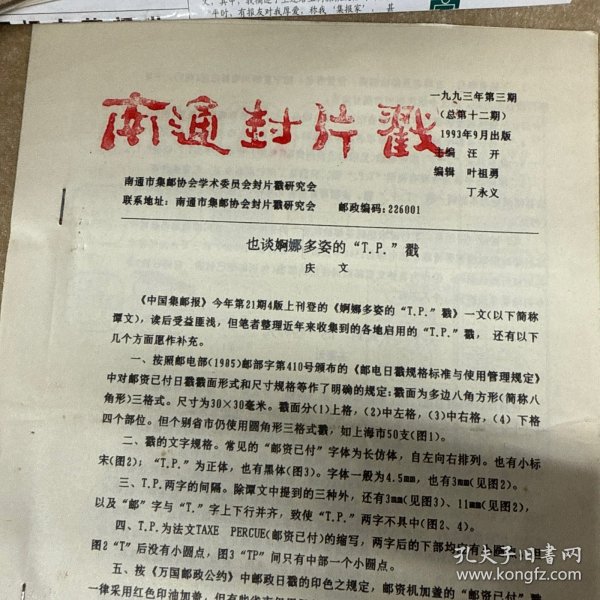 平时，有报友对我厚爱，称我‘集报家’，甚
南通封片戳
一九九三年第三期
（总第十二期）
1993年9月出版
主编 汪 开
编辑 叶祖勇
丁永义
南通市集邮协会学术委员会封片戳研究会
联系地址：南通市集邮协会封片戳研究会 邮政编码：226001
也谈婀娜多姿的“T.P.”戳
庆 文
《中国集邮报》今年第21期4版上刊登的《婀娜多姿的“T.P.”戳》一文(以下简称
谭文)，读后受益匪浅，但笔者整理近年来收集到的各地启用的“T.P.”戳， 还有以下
几个方面愿作补充。
一、按照邮电部(1985)邮部字第410号颁布的《邮电日戳规格标准与使用管理规定》
中对邮资已付日戳戳面形式和尺寸规格等作了明确的规定：戳面为多边八角方形(简称八
角形)三格式。尺寸为30×30毫米。戳面分(1)上格，(2)中左格，(3)中右格，(4) 下格
四个部位。但个别省市仍使用圆角形三格式戳，如上海市50支(图1)。
二、戳的文字规格。常见的“邮资已付”字体为长仿体，自左向右排列。也有小标
宋(图2)；“T.P.”为正体，也有黑体(图3)。字体一般为4.5mm，也有3mm(见图2)。
三、T.P.两字的间隔。除谭文中提到的三种外，还有3mm(见图3)、11mm(见图2)，
以及“邮”字与“T.”字上下行并齐，致使“T.P.”两字不具中(图2、4)。
四、T.P.为法文TAXE PERCUE(邮资已付)的缩写，两字后的下部均应有小圆
图2“T”后没有小圆点，图3“TP”间只有中部一个小圆点。
五、按《万国邮政公约》中邮政日戳的印色之规定，邮资机加盖的“邮资已付”戳
一律采用红色印油加盖，但有些省市
孔夫子旧书网
www.kongfz.com